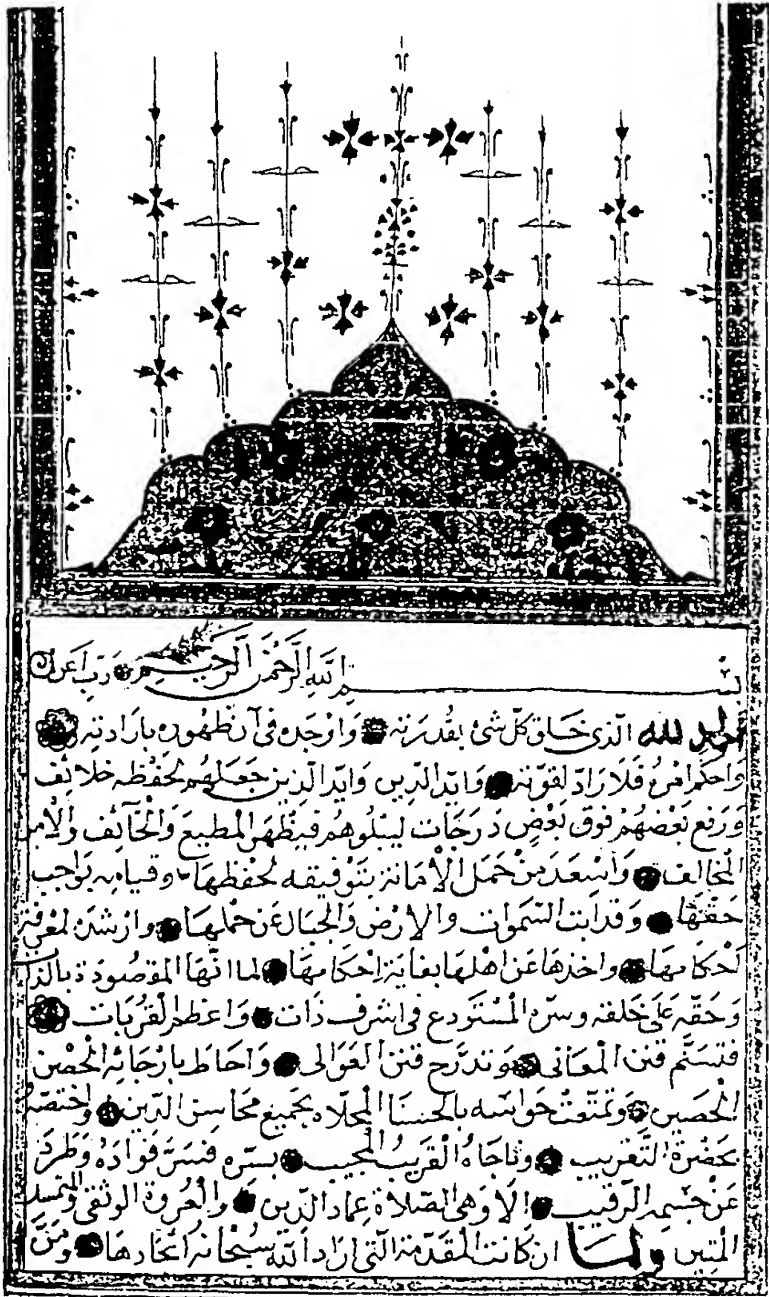 بسم الله الرحمن الرحيم رب أعن
الحمد لله الذى خلق كل شئ بقدرته وأوجده فى آن ظهوره بارادته
وأحكم أمره فلا رادّ لقوته وايد الدين وايد الذين جعلهم لحفظه خلائف
ورفع بعضهم فوق بعض درجات ليبلوهم فيظهر المطيع والخائف والآمن
المخالف وأسعد من حمل الأمانة بتوفيقه لحفظها وقيامه بواجب
حقها وقد ابت السموات والارض والجبال عن حملها وارشد لمعرفة
احكامها واخذها عن اهلها بغاية إحكامها لما انها المقصودة بالذات
وحقه على خلقه وسره المستودع فى اشرف ذات وأعظم القربات
فتسنم قنن المعانى وتدرّج قنن العوالى وأحاط بارجائه الحصن
الحصين وتمتعت حواسه بالحسنا المجلاه بجميع محاسن الدين واختصه
بحضرة التقريب وناجاه القريب المجيب بسره فسرّ فواده وطرد
عن جسمه الرقيب ألا وهى الصلاة عماد الدين والعروة الوثقى
المتين ولما ان كانت المقدمة التى اراد الله سبحانه اتحادها ومنّ